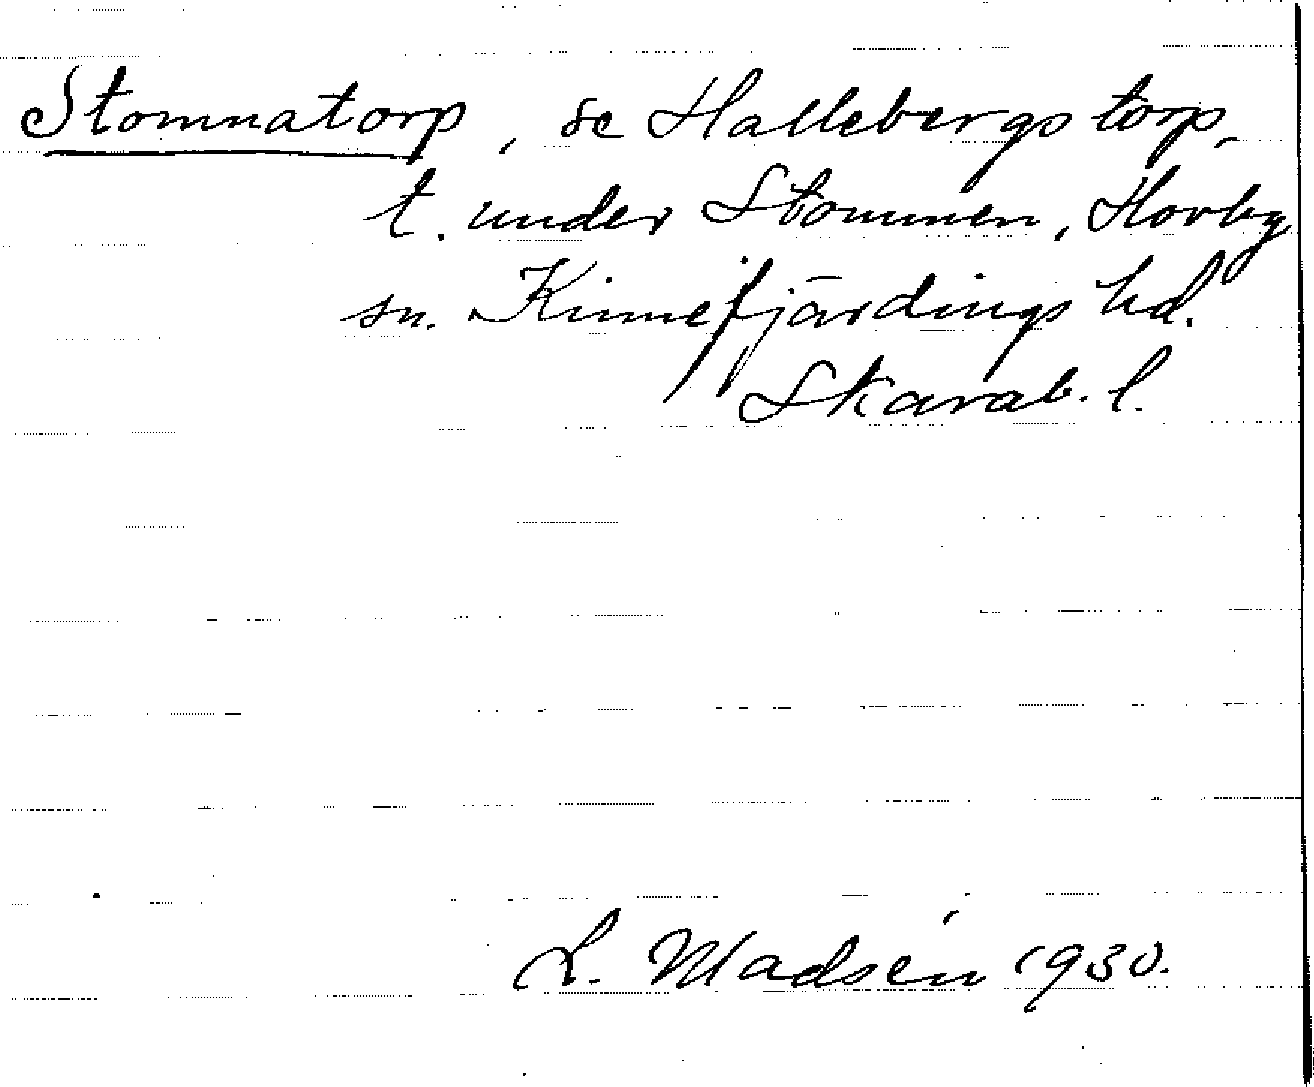 Stomnatorp, se Hallebergstorp,
t. under Stommen, Hovby
sn. Kinnefjärdings hd.
Skarab. l.
L. Madsén 1930.